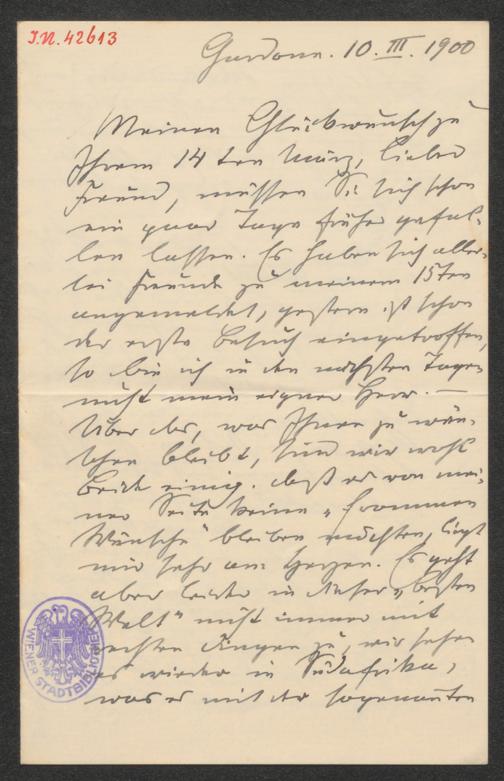 I.N. 42613
Gardone. 10. III. 1900
Meinen Glückwunsch zu
Ihrem 14ten März, lieber
Freund, müssen Sie sich schon
ein paar Tage früher gefal-
len lassen. Es haben sich aller-
lei Freunde zu meinem 15ten
angemeldet, gestern ist schon
der erste Besuch eingetroffen,
so bin ich in den nächsten Tagen
nicht mein eigner Herr. —
Über das, was Ihnen zu wün-
schen bleibt, sind wir wohl
beide einig. Daß es von mei-
ner Seite keine „frommen
Wünsche" bleiben möchten, liegt
mir sehr am Herzen. Es geht
aber leider in dieser „besten
Welt" nicht immer mit
rechten Dingen zu, wir sehen
es wieder in Südafrika,
was es mit der sogenannten
WIENER STADTBIBLIOTHEK